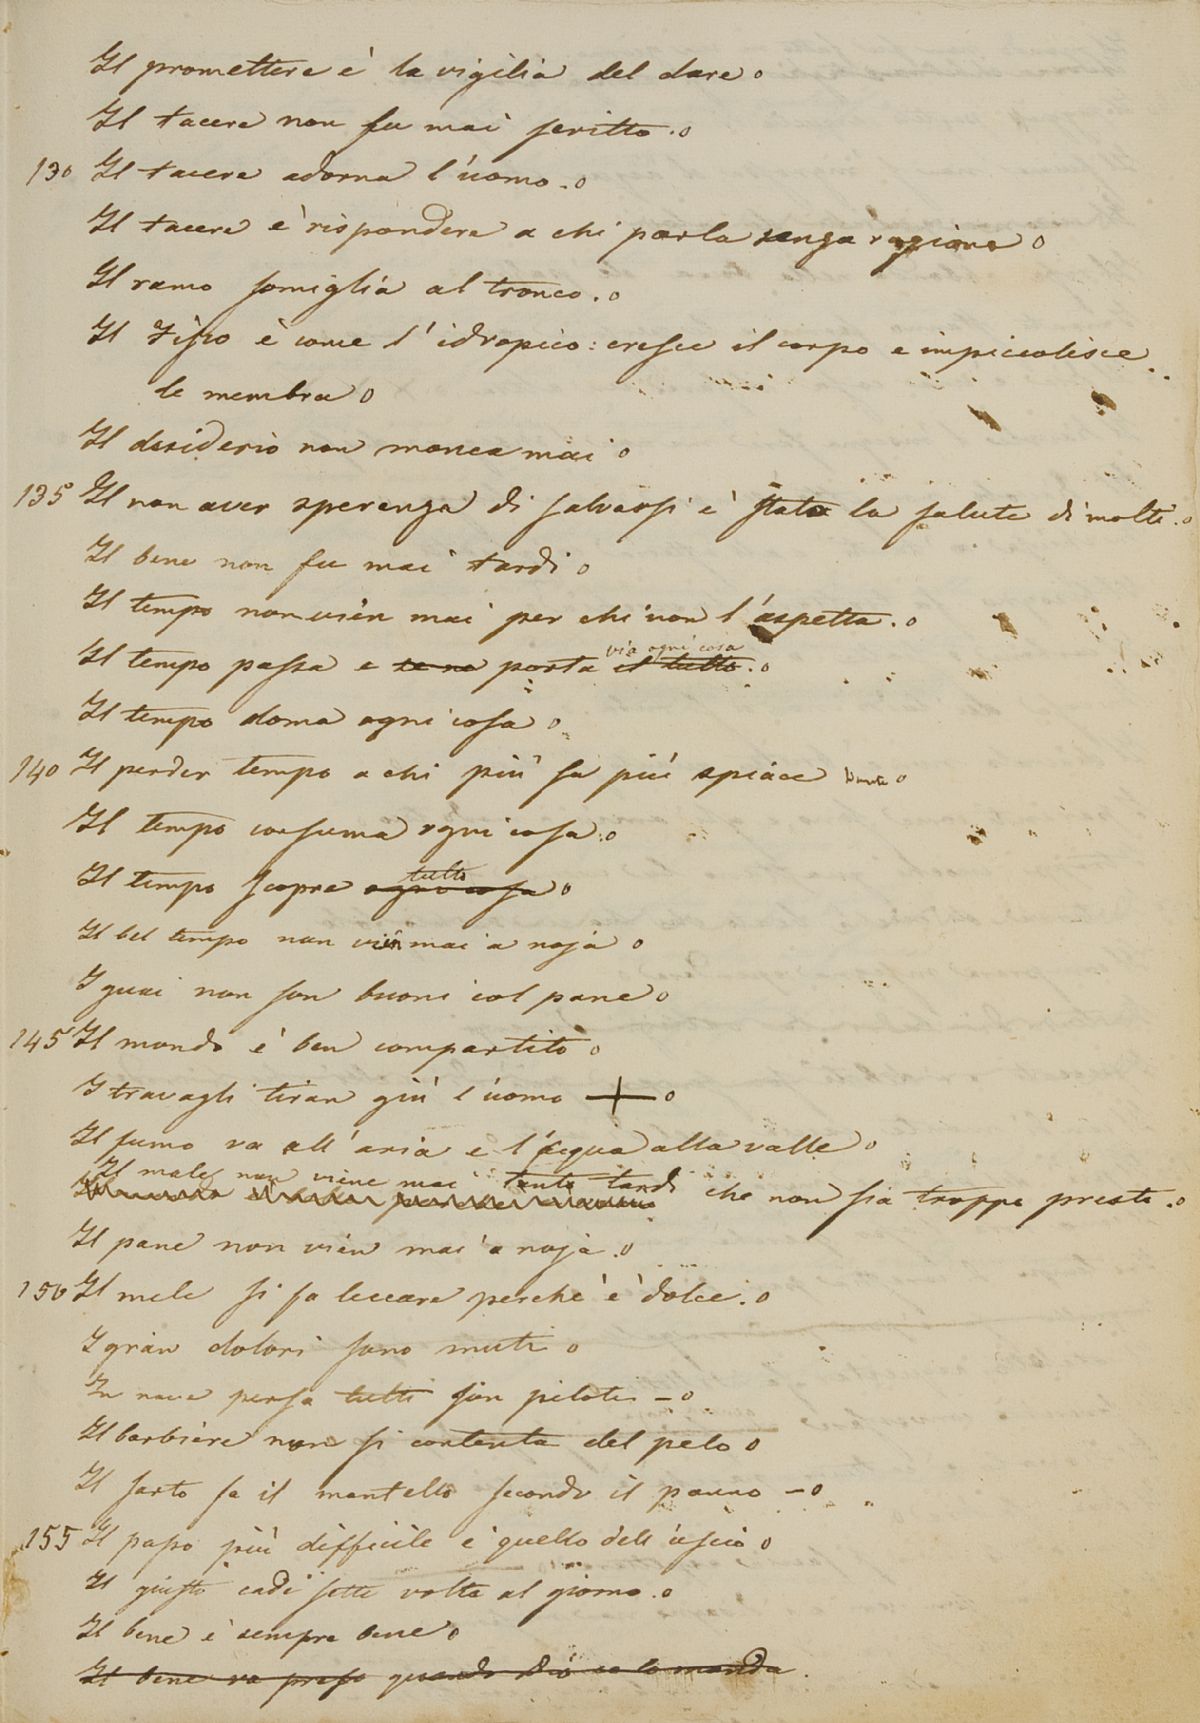 Il promettere è la vigilia del dare o
Il tacere non fu mai scritto. o
130 Il tacere adorna l'uomo. o
Il tacere è rispondere a chi parla senza ragione o
Il ramo somiglia al tronco. o
Il Fisco è come l'idropico: cresce il corpo e impiccolisce
le membra o
Il desiderio non manca mai o
135 Il non aver speranza di salvarsi è stata la salute di molti. o
Il bene non fu mai tardi o
Il tempo non vien mai per chi non l'aspetta. o
via ogni cosa
Il tempo passa e se ne porta il tutto. o
Il tempo doma ogni cosa o
140 Il perder tempo a chi più sa più spiace Dante o
Il tempo consuma ogni cosa. o
tutto
Il tempo scopre ogni cosa o
Il bel tempo non vien mai a noja o
I guai non son buoni col pane o
145 Il mondo è ben compartito o
I travagli tiran giù l'uomo + o
Il fumo va all'aria e l'acqua alla valle o
Il male non viene mai tanto tardi che non sia troppo presto. o
Il pane non vien mai a noja. o
150 Il mele si fa leccare perchè è dolce. o
I gran dolori sono muti o
In nave persa tutti son piloti – o
Il barbiere non si contenta del pelo o
Il sarto fa il mantello secondo il panno – o
155 Il passo più difficile è quello dell'uscio o
Il giusto cade sette volte al giorno. o
Il bene è sempre bene o
Il bene va preso quando Dio ce lo manda.